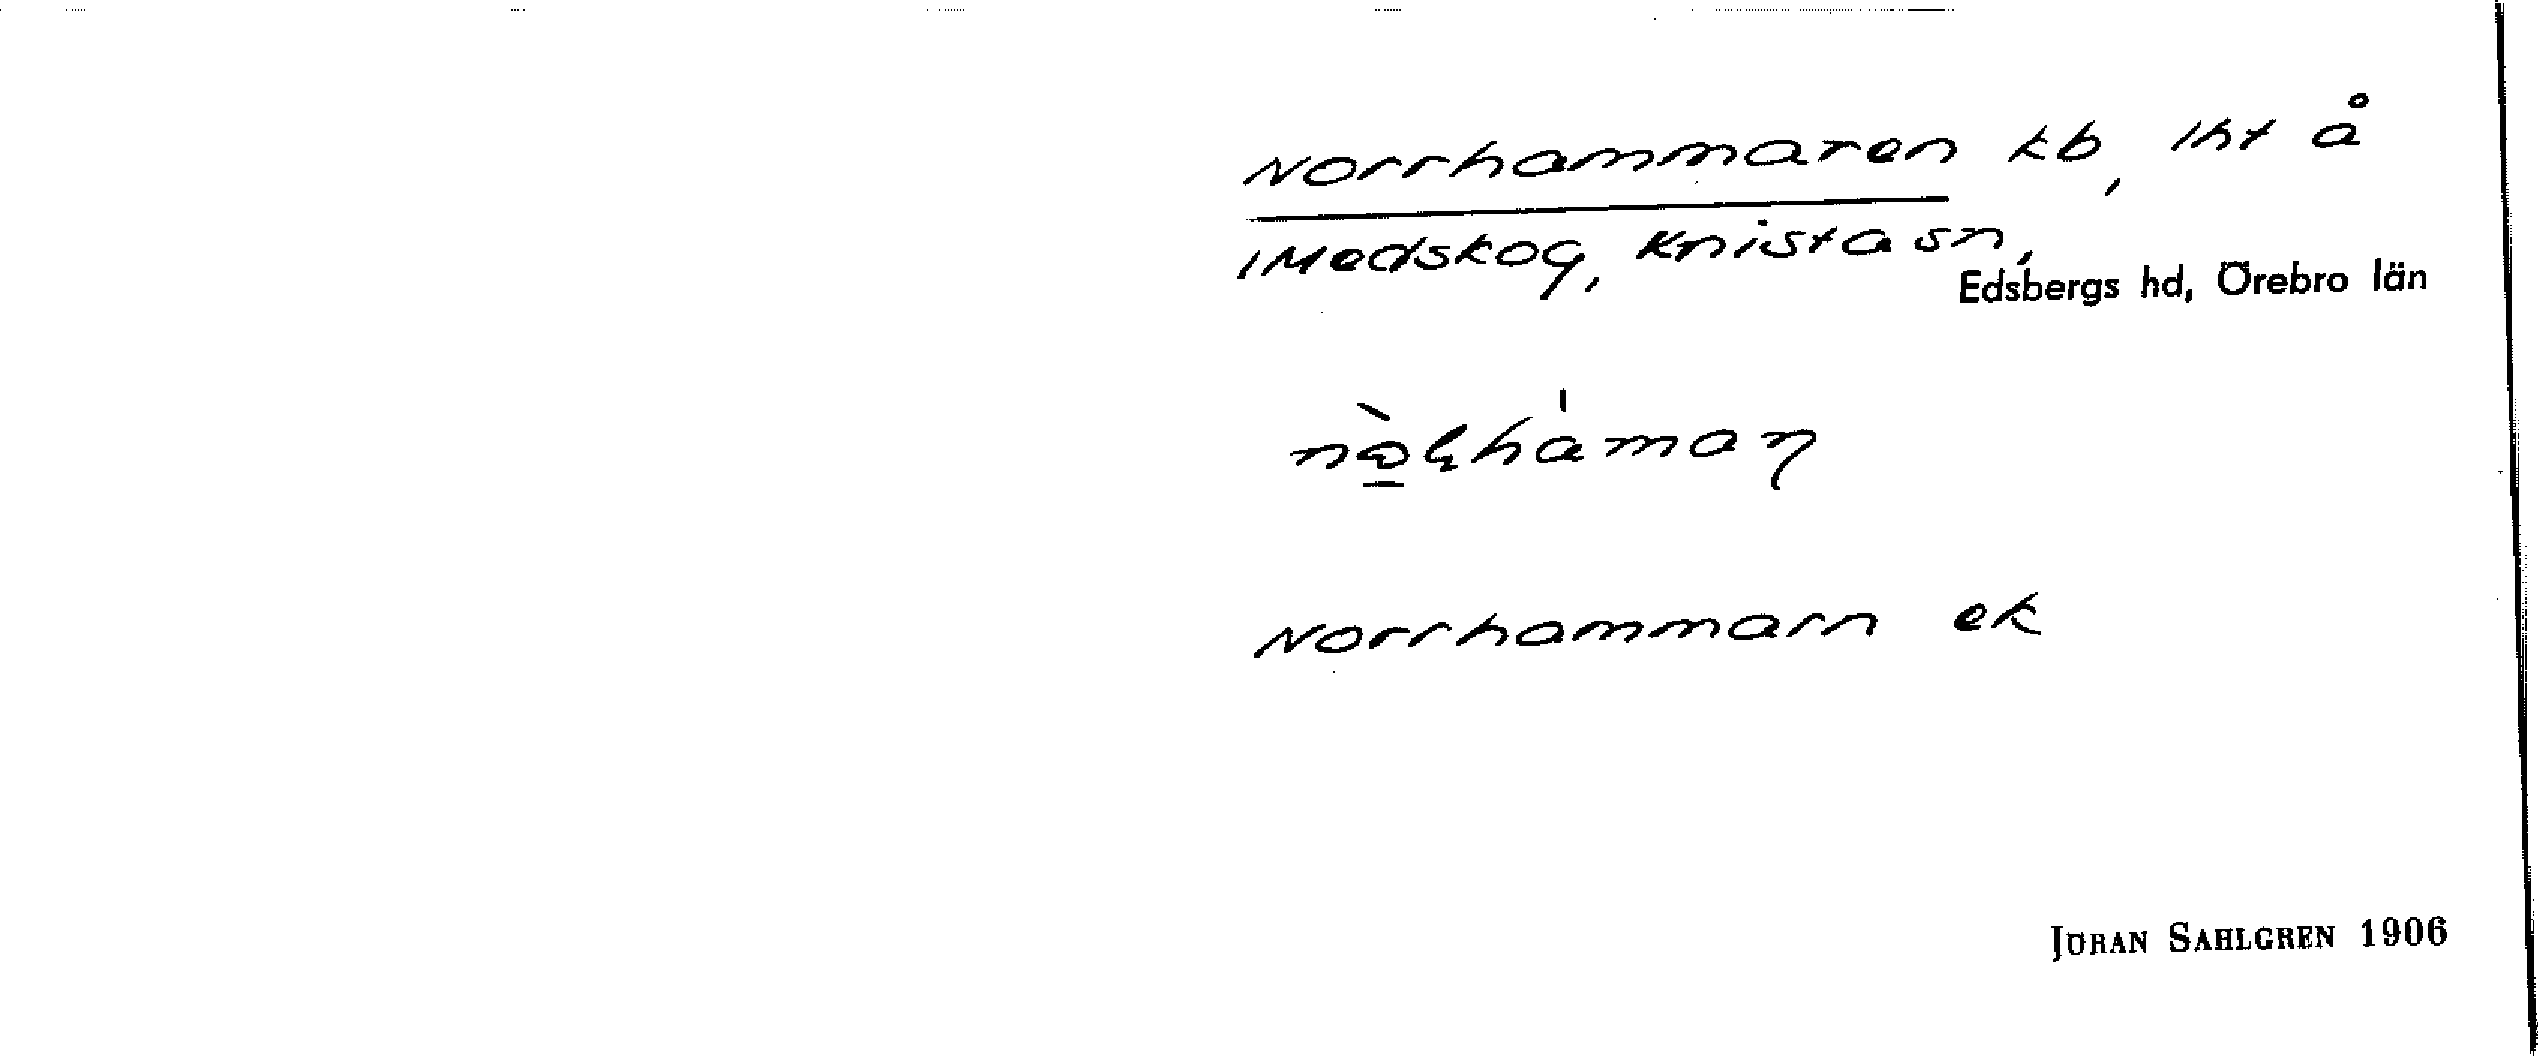 Norrhammaren kb, lht å
i Medskog, Knista sn,
Edsbergs hd, Örebro län
Norrhammarn ek
JÖRAN SAHLGREN 1906